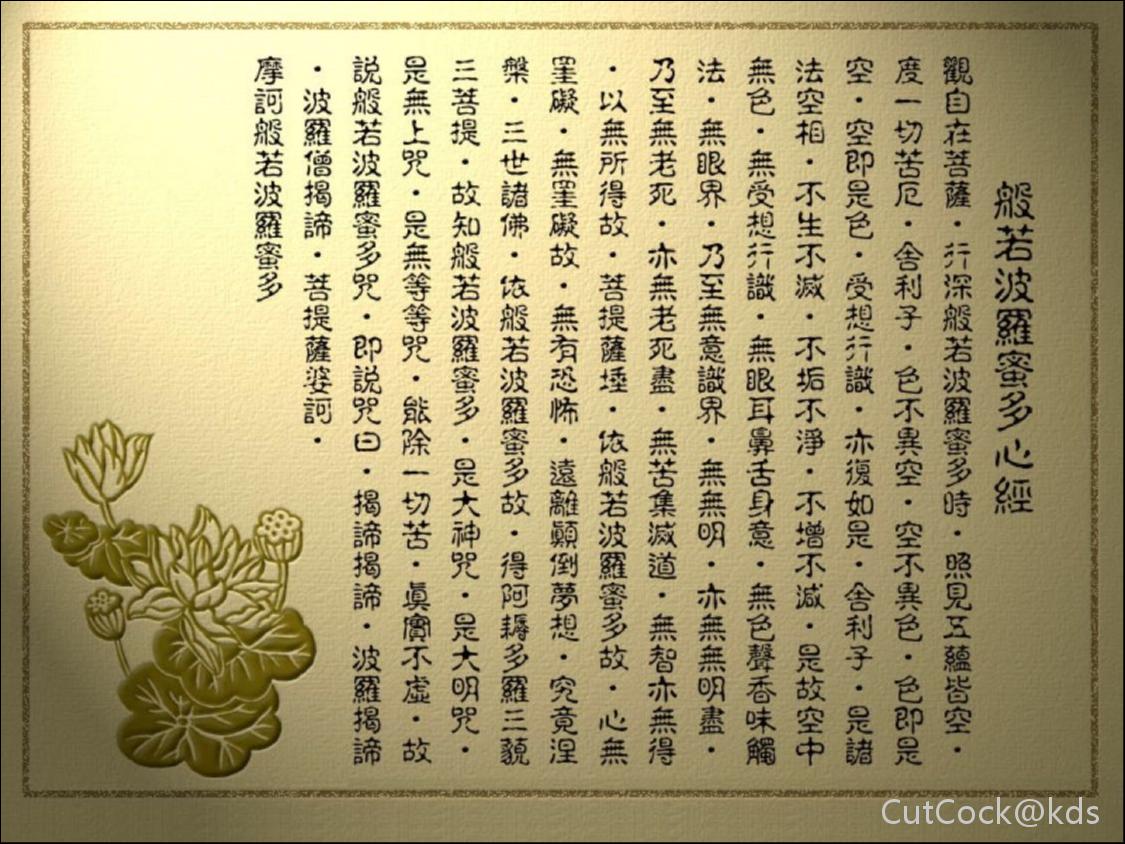 般若波羅蜜多心經
觀自在菩薩・行深般若波羅蜜多時・照見五蘊皆空・
度一切苦厄・舍利子・色不異空・空不異色・色即是
空・空即是色・受想行識・亦復如是・舍利子・是諸
法空相・不生不滅・不垢不淨・不增不減・是故空中
無色・無受想行識・無眼耳鼻舌身意・無色聲香味觸
法・無眼界・乃至無意識界・無無明・亦無無明盡・
乃至無老死・亦無老死盡・無苦集滅道・無智亦無得
・以無所得故・菩提薩埵・依般若波羅蜜多故・心無
罣礙・無罣礙故・無有恐怖・遠離顛倒夢想・究竟涅
槃・三世諸佛・依般若波羅蜜多故・得阿耨多羅三藐
三菩提・故知般若波羅蜜多・是大神咒・是大明咒・
是無上咒・是無等等咒・能除一切苦・眞實不虛・故
說般若波羅蜜多咒・即說咒曰・揭諦揭諦・波羅揭諦
・波羅僧揭諦・菩提薩婆訶・
摩訶般若波羅蜜多
CutCock@kds